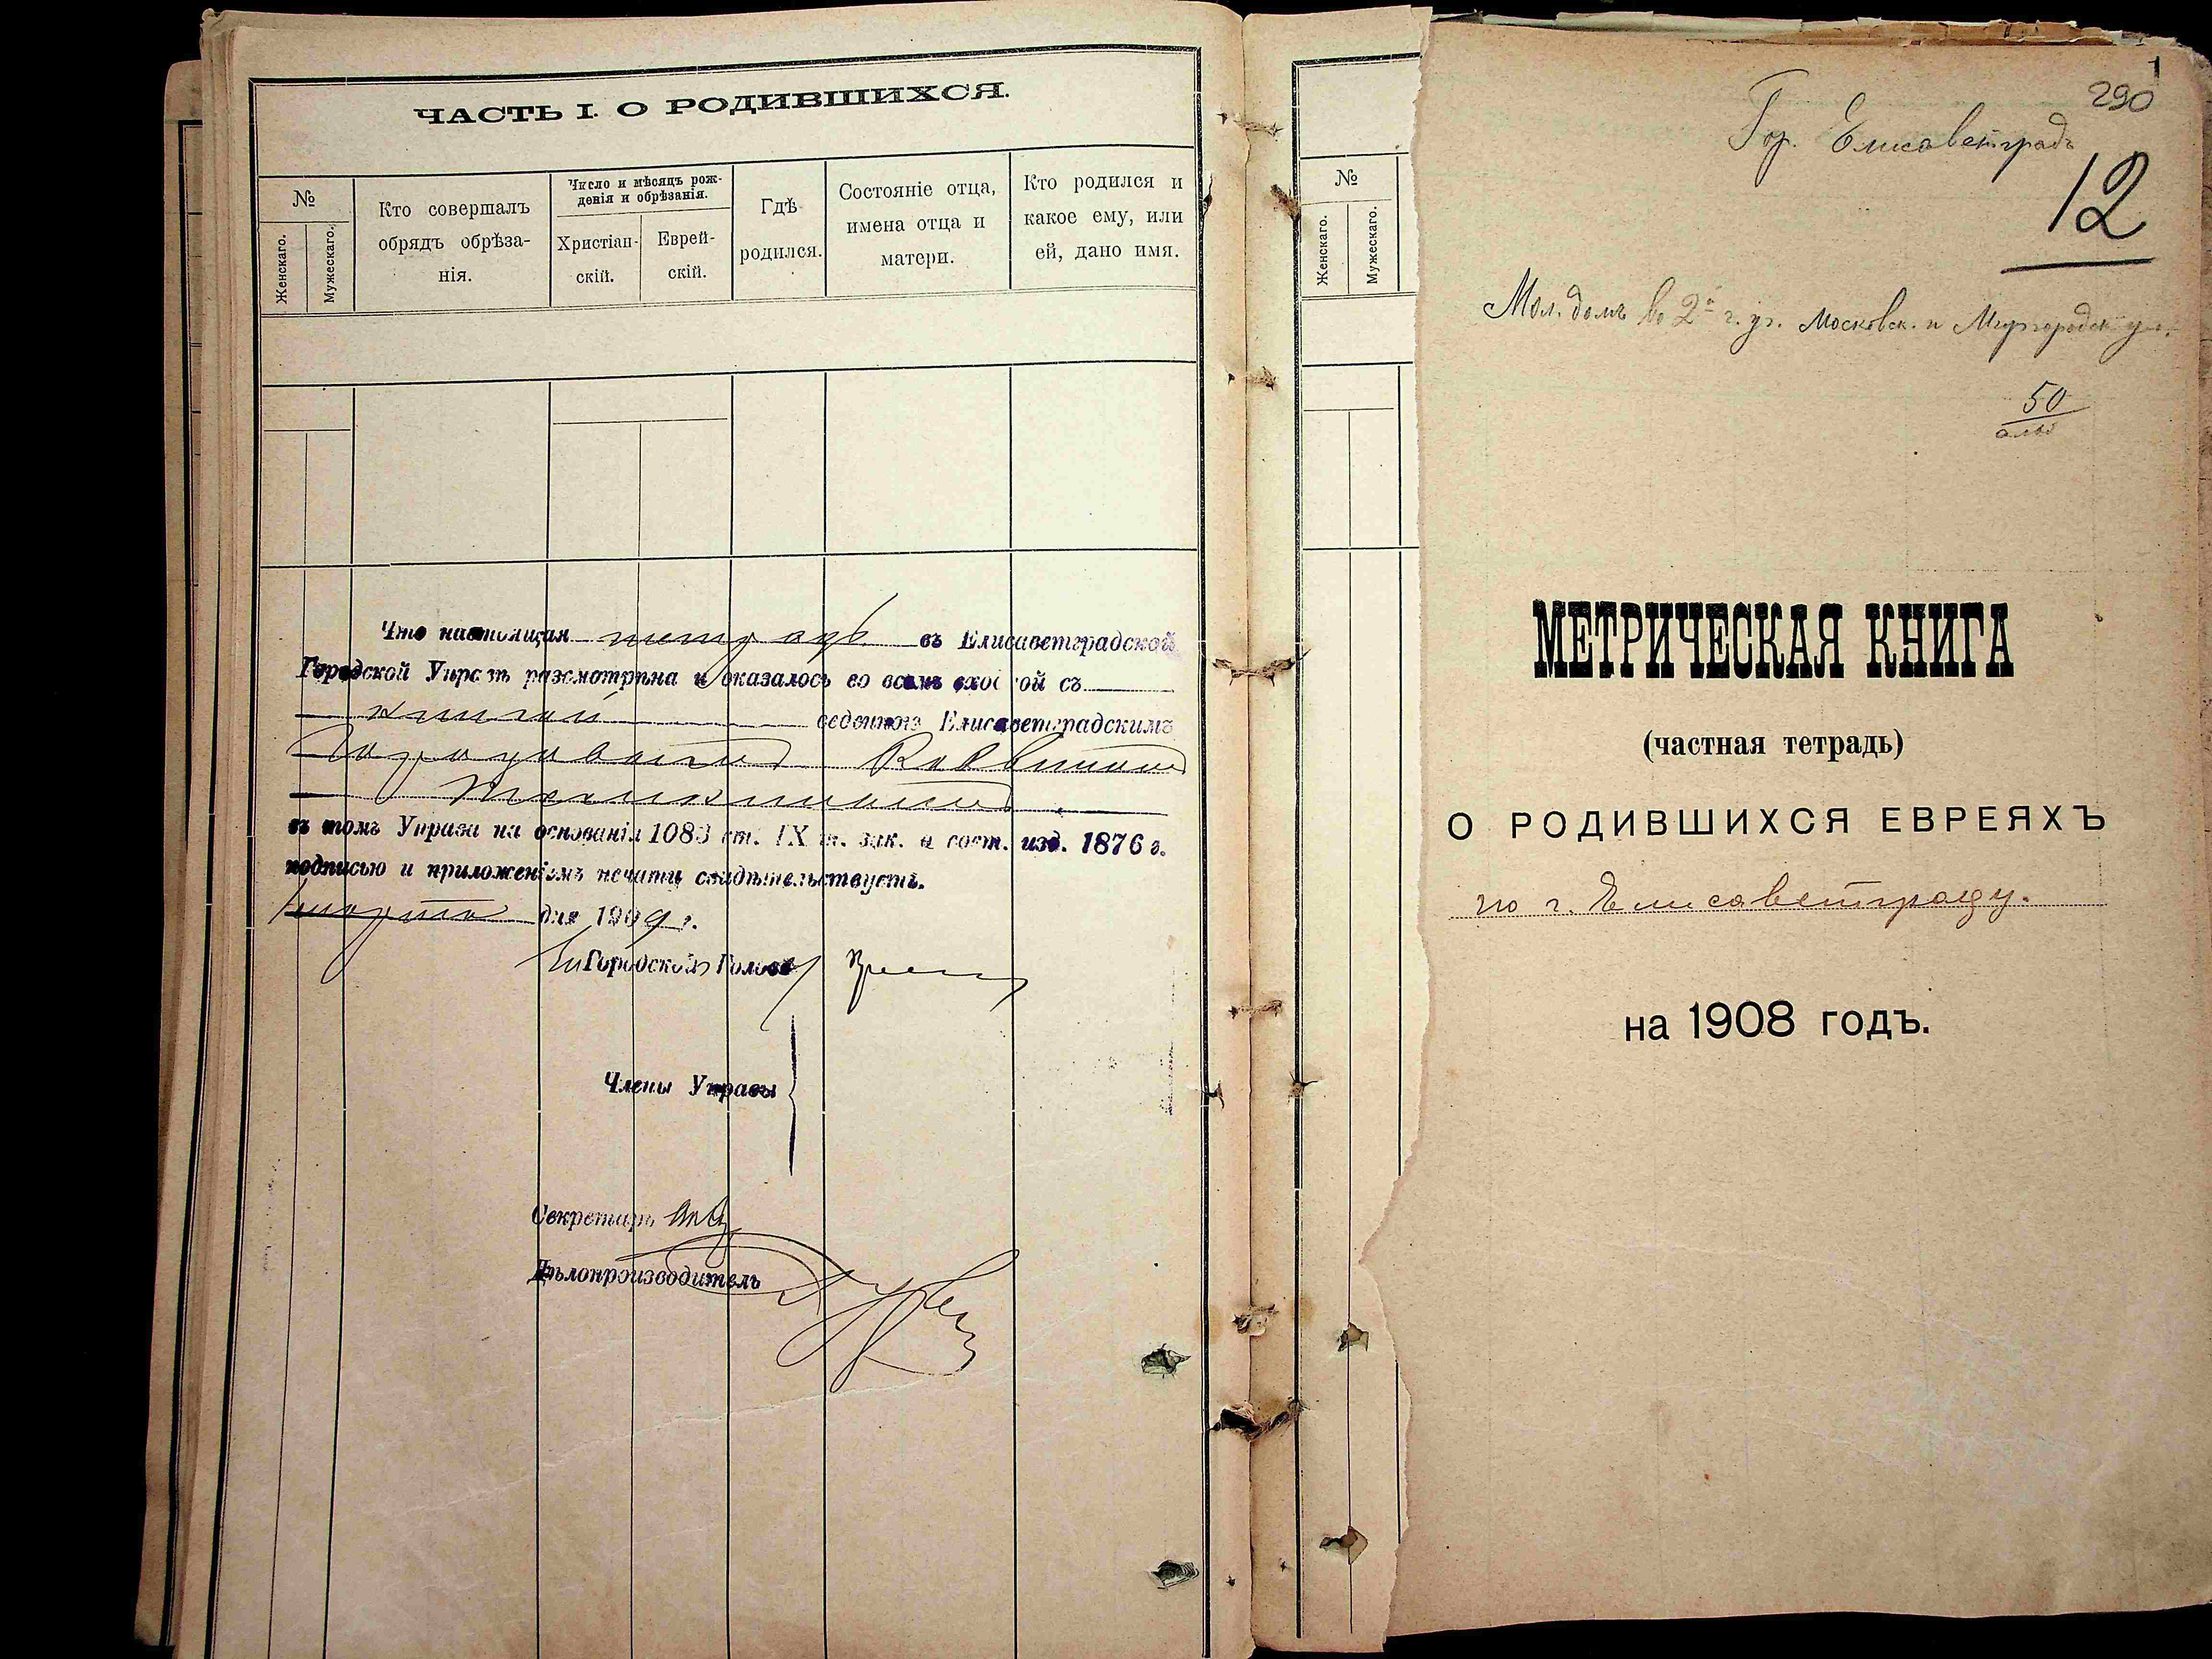 ЧАСТЬ I. О РОДИВШИХСЯ.
№
Женскаго.
Мужескаго.
Кто совершалъ
обрядъ обрѣза-
нія.
Число и мѣсяцъ рож-
денія и обрѣзанія.
Христіан-
скій.
Еврей-
скій.
Гдѣ
родился.
Состояніе отца,
имена отца и
матери.
Кто родился и
какое ему, или
ей, дано имя.
Что настоящая тетрадь въ Елисаветградской
Городской Управѣ разсмотрѣна и оказалось во всемъ схожой съ
книгой веденною Елисаветградскимъ
Городовымъ Раввиномъ
въ томъ Управа на основаніи 1083 ст. IX т. зак. о сост. изд. 1876 г.
подписью и приложеніемъ печати свидѣтельствуетъ.
Марта дня 1909 г.
Городской Голова
Члены Управы
Секретарь
Дѣлопроизводитель
№
Женскаго.
Мужескаго.
1
290
Гор. Елисаветградъ
12
Мол. домъ во 2й ч. уг. Московск. и Миргородск. ул.
50
МЕТРИЧЕСКАЯ КНИГА
(частная тетрадь)
О РОДИВШИХСЯ ЕВРЕЯХЪ
по г. Елисаветграду.
на 1908 годъ.